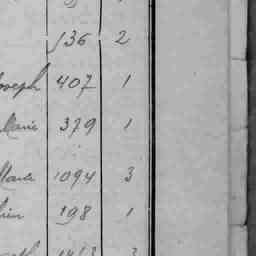 136 2
Joseph 407 1
Marie 379 1
Marie 1094 3
198 1